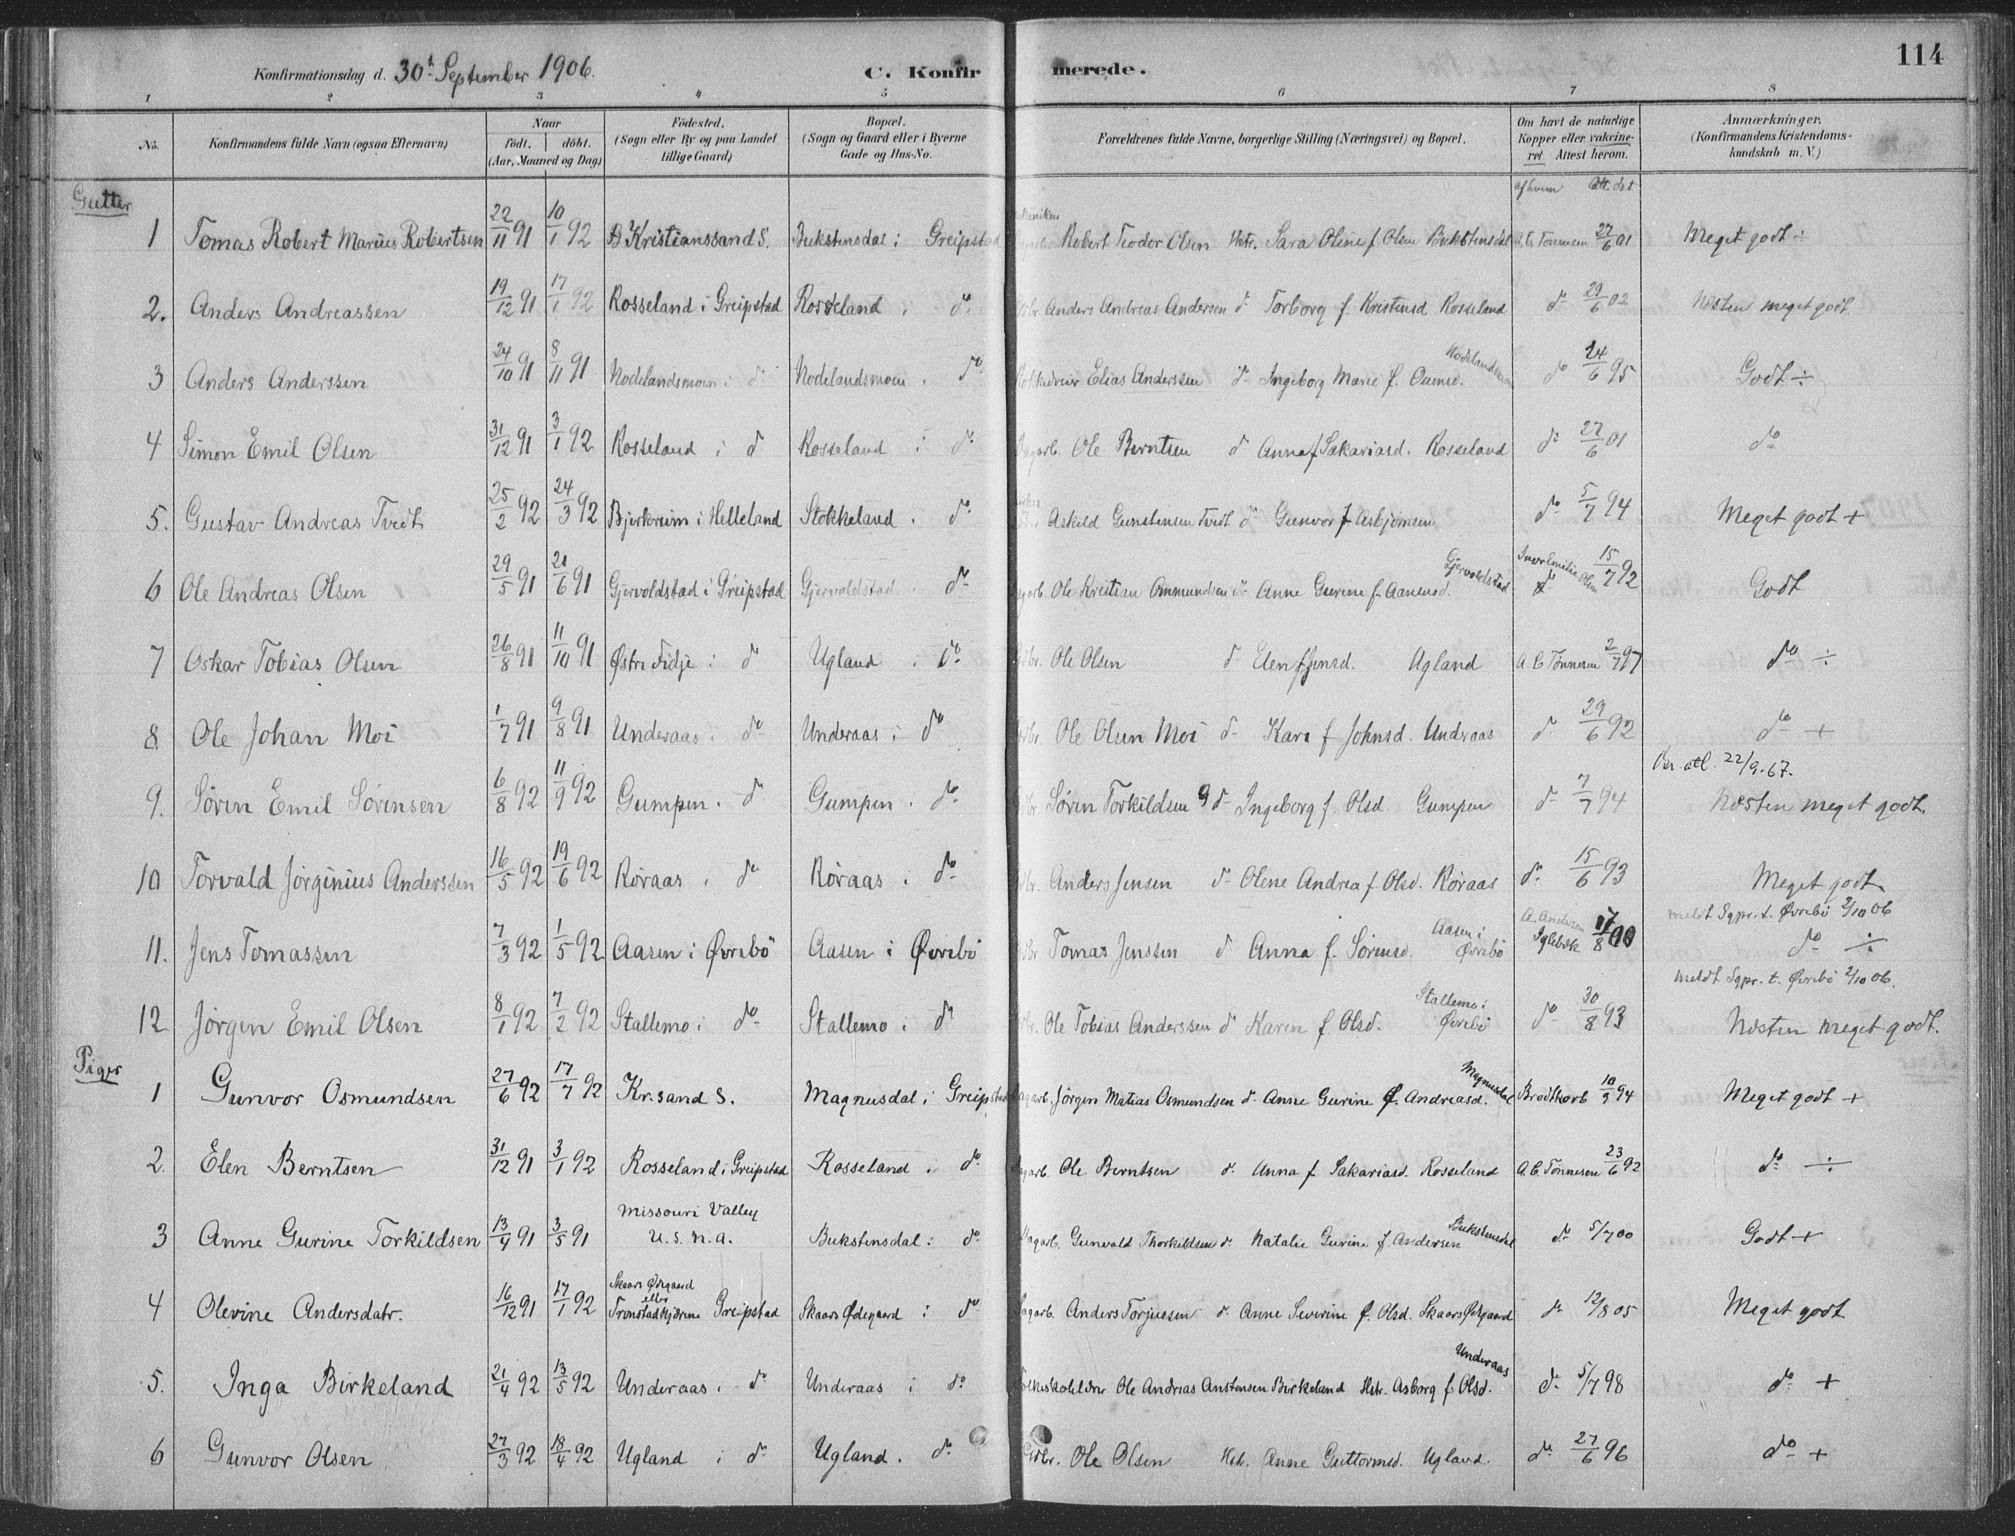 Konfirmationsdag d. 30t September 1906. C. Konfir merede. 114
1 2 3 4 5 6 7 8
No. Konfirmandens fulde Navn (ogsaa Efternavn) Naar født. døbt. (Aar, Maaned og Dag) Fødested. (Sogn eller By og paa Landet tillige Gaard) Bopæl. (Sogn og Gaard eller i Byerne Gade og Hus-No. Forældrenes fulde Navne, borgerlige Stilling (Næringsvei) og Bopæl. Om havt de naturlige Kopper eller vakcineret. Attest herom. Anmærkninger. (Konfirmandens Kristendomskundskab m. V.)
af hvem dat.
Gutter
1 Tomas Robert Marius Robertsen 22/11 91 10/1 92 Kristianssand S. Bukstensdal i Greipstad Robert Teodor Olsen Hstr. Sara Oline f. Olsen Bukstensdal A. C. Tønnesen 27/6 01 Meget godt ÷
2. Anders Andreassen 19/12 91 17/1 92 Rosseland i Greipstad Rosseland i do Anders Andreas Andersen do Torborg f. Kristensd. Rosseland do 29/6 02 Næsten meget godt.
3 Anders Anderssen 24/10 91 8/11 91 Nodelandsmoen i do Nodelandsmoen i do Elias Anderssen do Ingeborg Marie f. Nodelandsmoen do 24/6 95 Godt ÷
4 Simon Emil Olsen 31/12 91 3/1 92 Rosseland i do Rosseland i do Dagarb. Ole Berntsen do Anna f. Sakariasd. Rosseland do 27/6 01 do
5. Gustav Andreas Tvedt 25/2 92 24/3 92 Bjerkreim i Helleland Stokkeland i do Askild Gunstensen Tvedt do Gunvor f. Asbjørnsen do 5/7 94 Meget godt +
6 Ole Andreas Olsen 29/5 91 21/6 91 Gjervoldstad i Greipstad Gjervoldstad i do Dagarb. Ole Kristian Ommundsen do Anne Gurine f. Aanensd. Gjervoldstad Olsen 15/7 92 Godt
7 Oskar Tobias Olsen 26/8 91 11/10 91 Østre Fidje i do Ugland i do Gdbr. Ole Olsen do Elen f. Jensd. Ugland A. C. Tønnesen 2/7 97 do ÷
8 Ole Johan Moi 1/7 91 9/8 91 Underaas i do Underaas i do Gdbr. Ole Olsen Moi do Kari f. Johnsd. Undraas do 29/6 92 do +
22/9.67.
9. Søren Emil Sørensen 6/8 92 11/9 92 Gumpen i do Gumpen i do Gdbr. Søren Torkildsen do Ingeborg f. Olsd. Gumpen do 7/7 94 Næsten meget godt.
10 Torvald Jørginius Anderssen 16/5 92 19/6 92 Røraas i do Røraas i do Gdbr. Anders Jensen do Olene Andrea f. Olsd. Røraas do 15/6 93 Meget godt.
meldt Sgpr. t. Øvrebø 2/10 06
11. Jens Tomassen 7/3 92 1/5 92 Aasen i Øvrebö Aasen i Øvrebö Gdbr Tomas Jenssen do Anna f. Sørensd. Aasen i Øvrebö A. Andersen Iglebæk 17/8 00 do ÷
meldt Sgpr. t. Øvrebø 2/10 06.
12 Jørgen Emil Olsen 8/1 92 7/2 92 Stallemo i do Stallemo i do Gdbr. Ole Tobias Anderssen do Karen f. Olsd. Stallemo i Øvrebö do 30/8 93 Næsten meget godt.
Piger
1 Gunvor Osmundsen 27/6 92 17/7 92 Kr.sand S. Magnusdal i Greipstad Dagarb. Jørgen Matias Osmundsen do Anne Gurine f. Andreasd. Magnusdal Brodtkorb 10/9 94 Meget godt +
2. Elen Berntsen 31/12 91 3/1 92 Rosseland i Greipstad Rosseland i do Dagarb. Ole Berntsen do Anna f. Sakariasd. Rosseland A. C. Tønnesen 23/6 92 do ÷
3 Anne Gurine Torkildsen 13/4 91 3/5 91 Missouri Valley U. S. N. A. Bukstensdal i do Dagarb. Gunvald Thorkildsen do Natalie Gurine f. Andersen Bukstensdal do 5/7 00 Godt +
4 Olevine Andersdatr. 16/12 91 17/1 92 Skaars Ødegaard eller Tronstadkjærne Greipstad Skaars Ødegaard i do Dagarb. Anders Torjussen do Anne Severine f. Olsd. Skaars Ødegaard do 12/8 05 Meget godt
5. Inga Birkeland 21/4 92 13/5 92 Underaas i do Underaas i do Ole Andreas Anstensen Birkeland Hstr. Asborg f. Olsd. Underaas do 5/7 98 do +
6 Gunvor Olsen 27/3 92 18/4 92 Ugland i do Ugland i do Gdbr. Ole Olsen Hstr. Anne Guttormsd. Ugland. do 27/6 96 do +